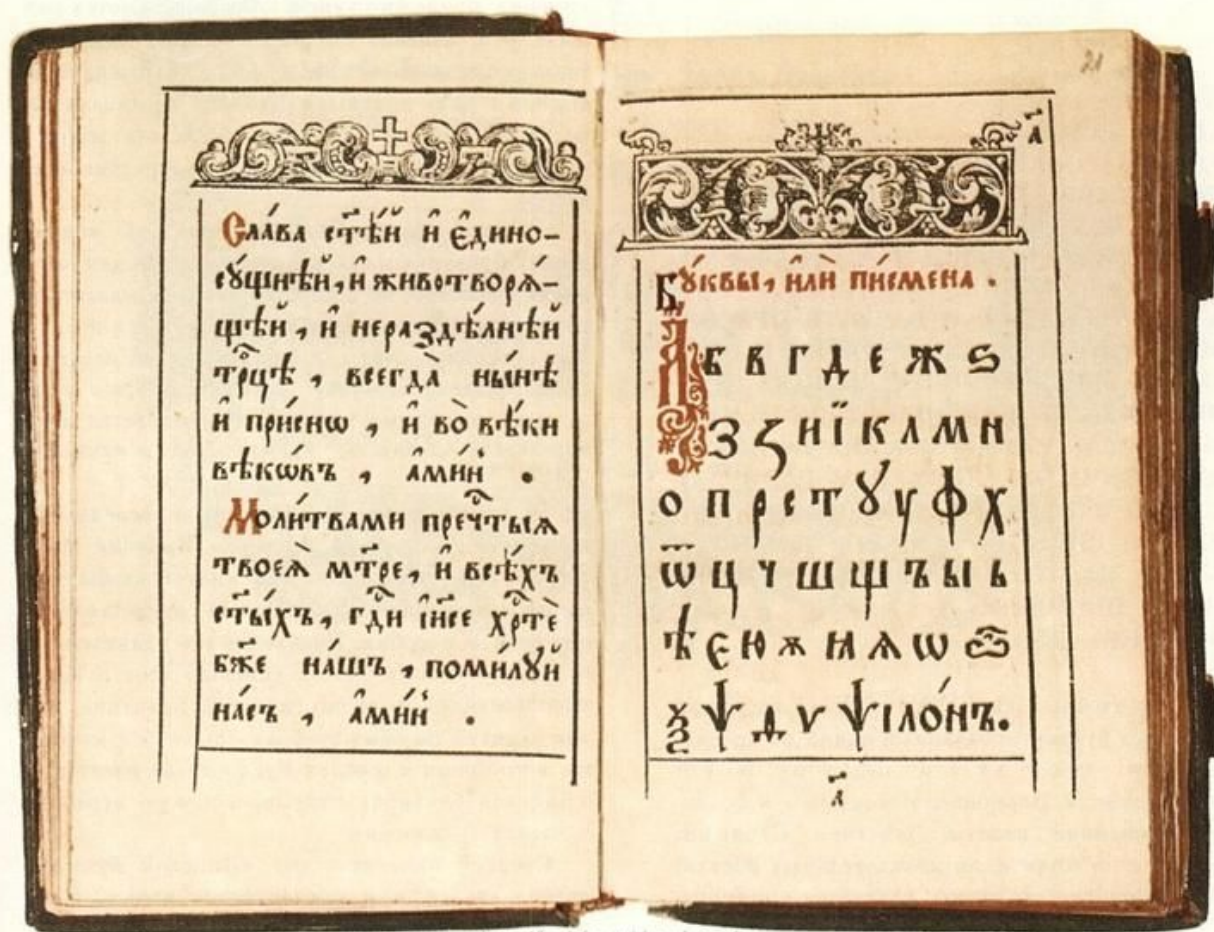 Сла́ва ст҃ѣ́й и҆ є҆дино-
сꙋ́щнѣй, и҆ животворѧ́-
щѣй, и҆ нераздѣ́лнѣй
трⷪ҇цѣ, всегда̀ ны́нѣ
и҆ при́снѡ, и҆ во̀ вѣ́ки
вѣкѡ́въ, а҆ми́нь.
Моли́твами пречⷭ҇тыѧ
твоеѧ̀ мт҃ре, и҆ всѣ́хъ
ст҃ы́хъ, гдⷭ҇и і҆и҃се хрⷭ҇тѐ
бж҃е на́шъ, поми́лꙋй
на́съ, а҆ми́нь.
21
а҃
Бꙋ́квы, и҆лѝ пи́смена.
А Б В Г Д Е Ж Ѕ
З Ꙁ И Ї К Л М Н
О П Р С Т Ꙋ У Ф Х
Ѿ Ц Ч Ш Щ Ъ Ы Ь
Ѣ Є Ю Ѫ Ꙗ Ѧ Ѡ
Ѯ Ѱ Ѳ Ѵ Ѱїло́нъ.
а҃